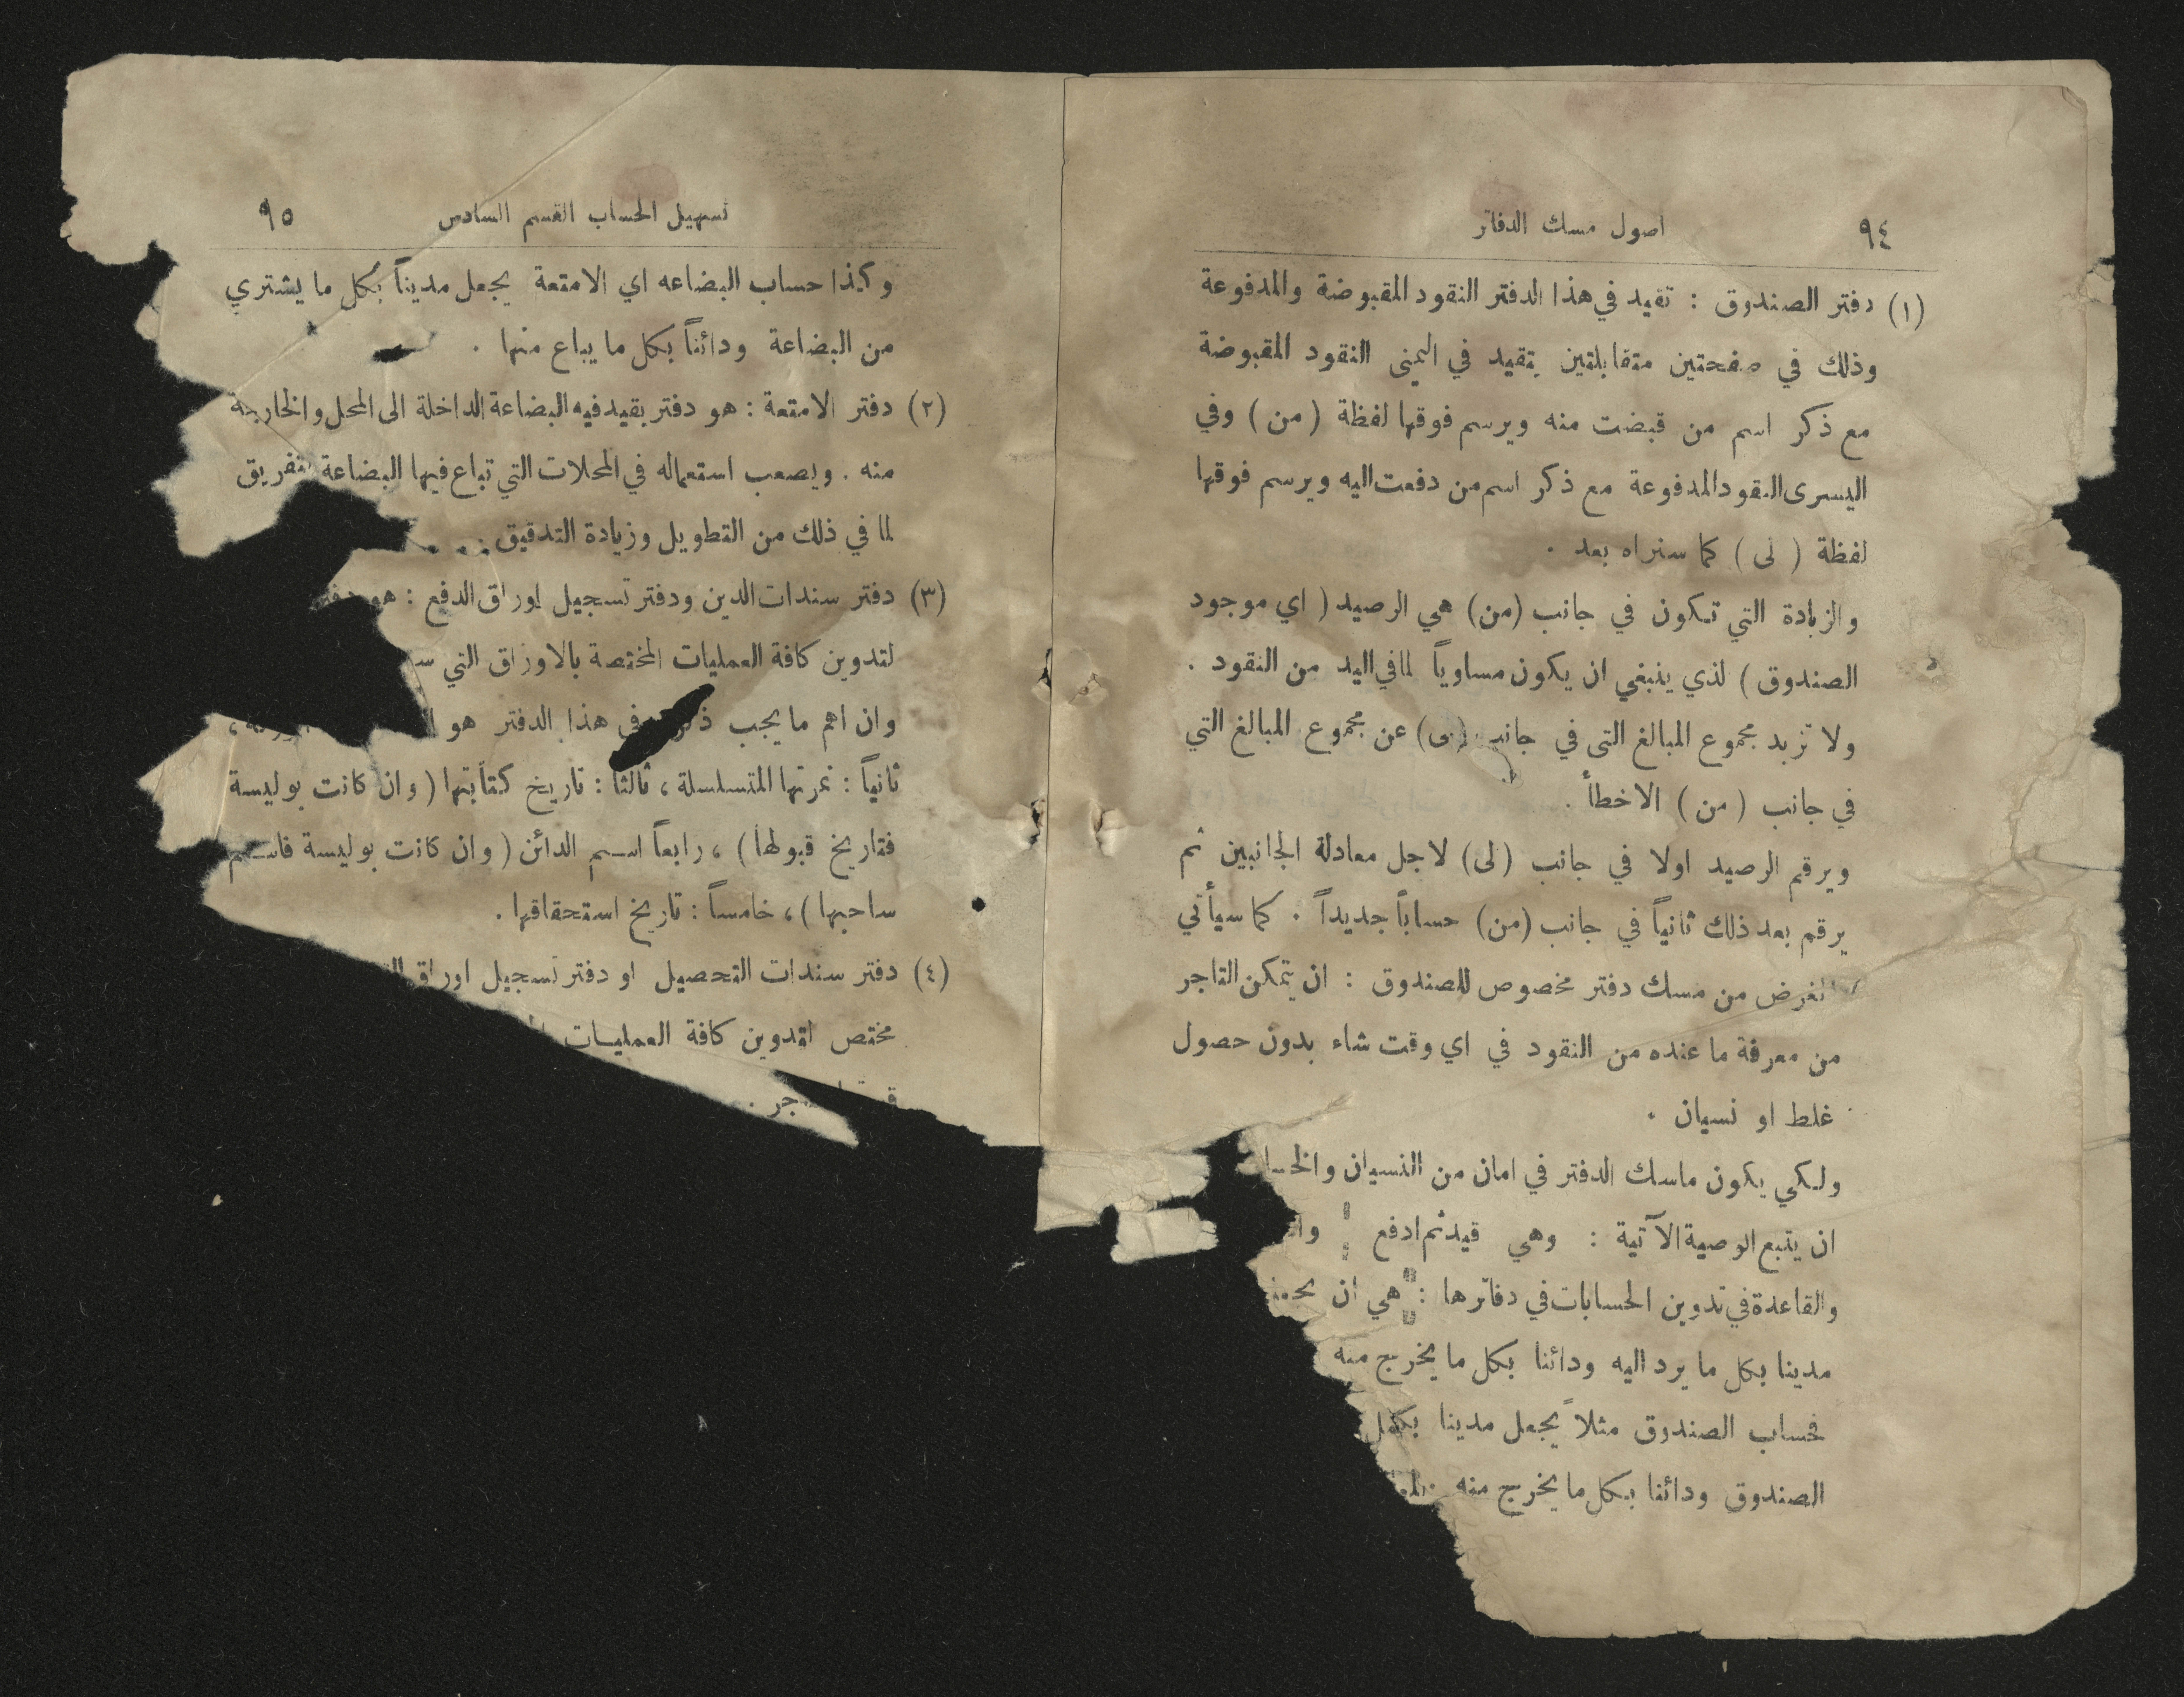 ٩٤
اصول مسك الدفاتر
(١) دفتر الصندوق : تقيد في هذا الدفتر النقود المقبوضة والمدفوعة
وذلك في صفحتين متقابلتين يتقيد في اليمنى النقود المقبوضة
مع ذكر اسم من قبضت منه ويرسم فوقها لفظة ( من ) وفي
اليسرى النقود المدفوعة مع ذكر اسم من دفعت اليه ويرسم فوقها
لفظة ( لى ) كما سنراه بعد .
والزيادة التي تكون في جانب (من) هي الرصيد ( اي موجود
الصندوق ) لذي ينبغي ان يكون مساوياً لما في اليد من النقود .
ولا تزيد مجموع المبالغ التى في جانب عن مجموع المبالغ التي
في جانب ( من ) الاخطأ .
ويرقم الرصيد اولا في جانب (لى) لاجل معادلة الجانبين ثم
يرقم بعد ذلك ثانياً في جانب (من) حساباً جديداً . كما سيأتي
الغرض من مسك دفتر مخصوص للصندوق : ان يتمكن التاجر
من معرفة ما عنده من النقود في اي وقت شاء بدون حصول
غلط او نسيان .
ولكي يكون ماسك الدفتر في امان من النسيان
ان يتبع الوصية الآتية : وهي قيد ثم ادفع
والقاعدة في تدوين الحسابات في دفاترها : هي ان
مدينا بكل ما يرد اليه ودائنا بكل ما يخرج منه
فحساب الصندوق مثلاً يجعل مدينا بكل
الصندوق ودائنا بكل ما يخرج منه
تسهيل الحساب القسم السادس
٩٥
وكذا حساب البضاعه اي الامتعة يجعل مديناً بكل ما يشتري
من البضاعة ودائناً بكل ما يباع منها .
(٢) دفتر الامتعة : هو دفتر يقيد فيه البضاعة الداخلة الى المحل والخارجة
منه . ويصعب استعماله في المحلات التي تباع فيها البضاعة بتفريق
لما في ذلك من التطويل وزيادة التدقيق . . .
(٣) دفتر سندات الدين ودفتر تسجيل اوراق الدفع : هو دفتر
لتدوين كافة العمليات المختصة بالاوراق التي
وان اهم ما يجب في هذا الدفتر هو
ثانياً : نمرتها المتسلسلة ، ثالثاً : تاريخ كتابتها ( وان كانت بوليسة
فتاريخ قبولها ) ، رابعاً اسم الدائن ( وان كانت بوليسة فاسم
ساحبها ) ، خامساً : تاريخ استحقاقها .
(٤) دفتر سندات التحصيل او دفتر تسجيل اوراق
مختص لتدوين كافة العمليات